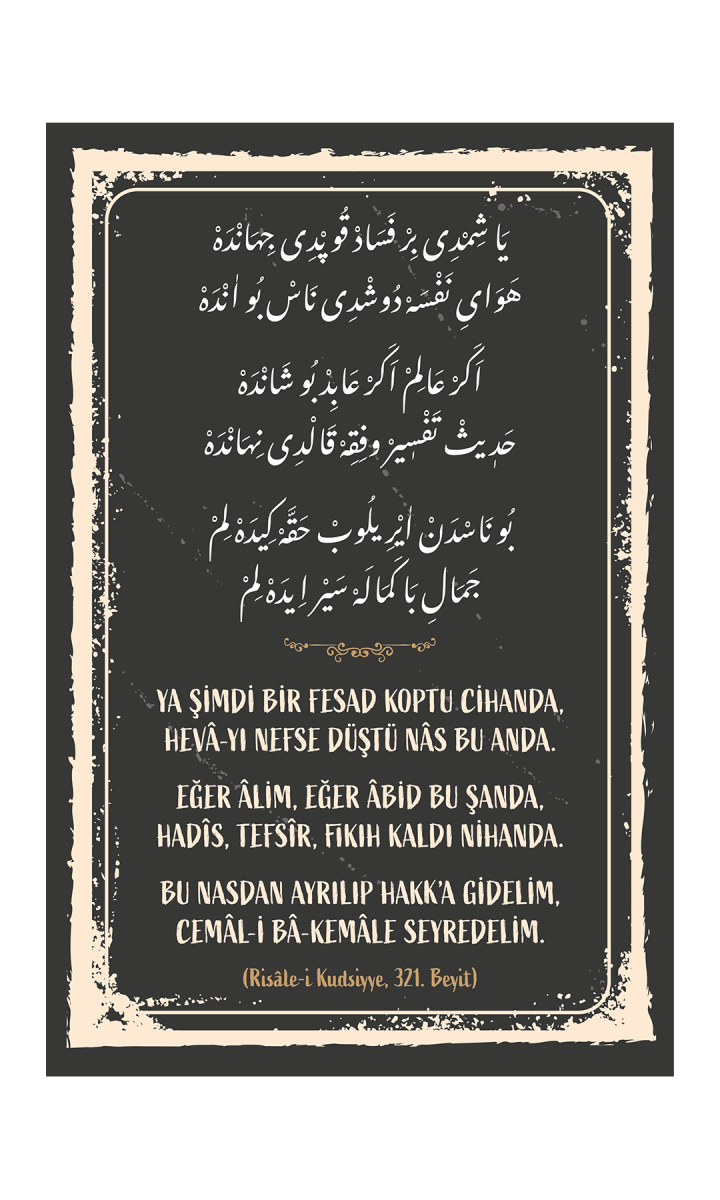 يَا شِمْدِى بِرْ فَسَادْ قُوپْدِى جِهَانْدَهْ
هَوَاىِ نَفْسَهْ دُوشْدِى نَاسْ بُو اٰنْدَهْ
اَكَرْ عَالِمْ اَكَرْ عَابِدْ بُو شَانْدَهْ
حَدِيثْ تَفْسِيرْ وفِقِهْ قَالْدِى نِهَانْدَهْ
بُو نَاسْدَنْ اَيْرِيلُوبْ حَقَّهْ كِيدَهْ لِمْ
جَمَالِ بَا كَمَالَهْ سَيْر اِيدَهْ لِمْ
YA ŞİMDİ BİR FESAD KOPTU CİHANDA,
HEVÂ-YI NEFSE DÜŞTÜ NÂS BU ANDA.
EĞER ÂLİM, EĞER ÂBİD BU ŞANDA,
HADÎS, TEFSÎR, FIKIH KALDI NİHANDA.
BU NASDAN AYRILIP HAKK'A GİDELİM,
CEMÂL-İ BÂ-KEMÂLE SEYREDELİM.
(Risâle-i Kudsiyye, 321. Beyit)